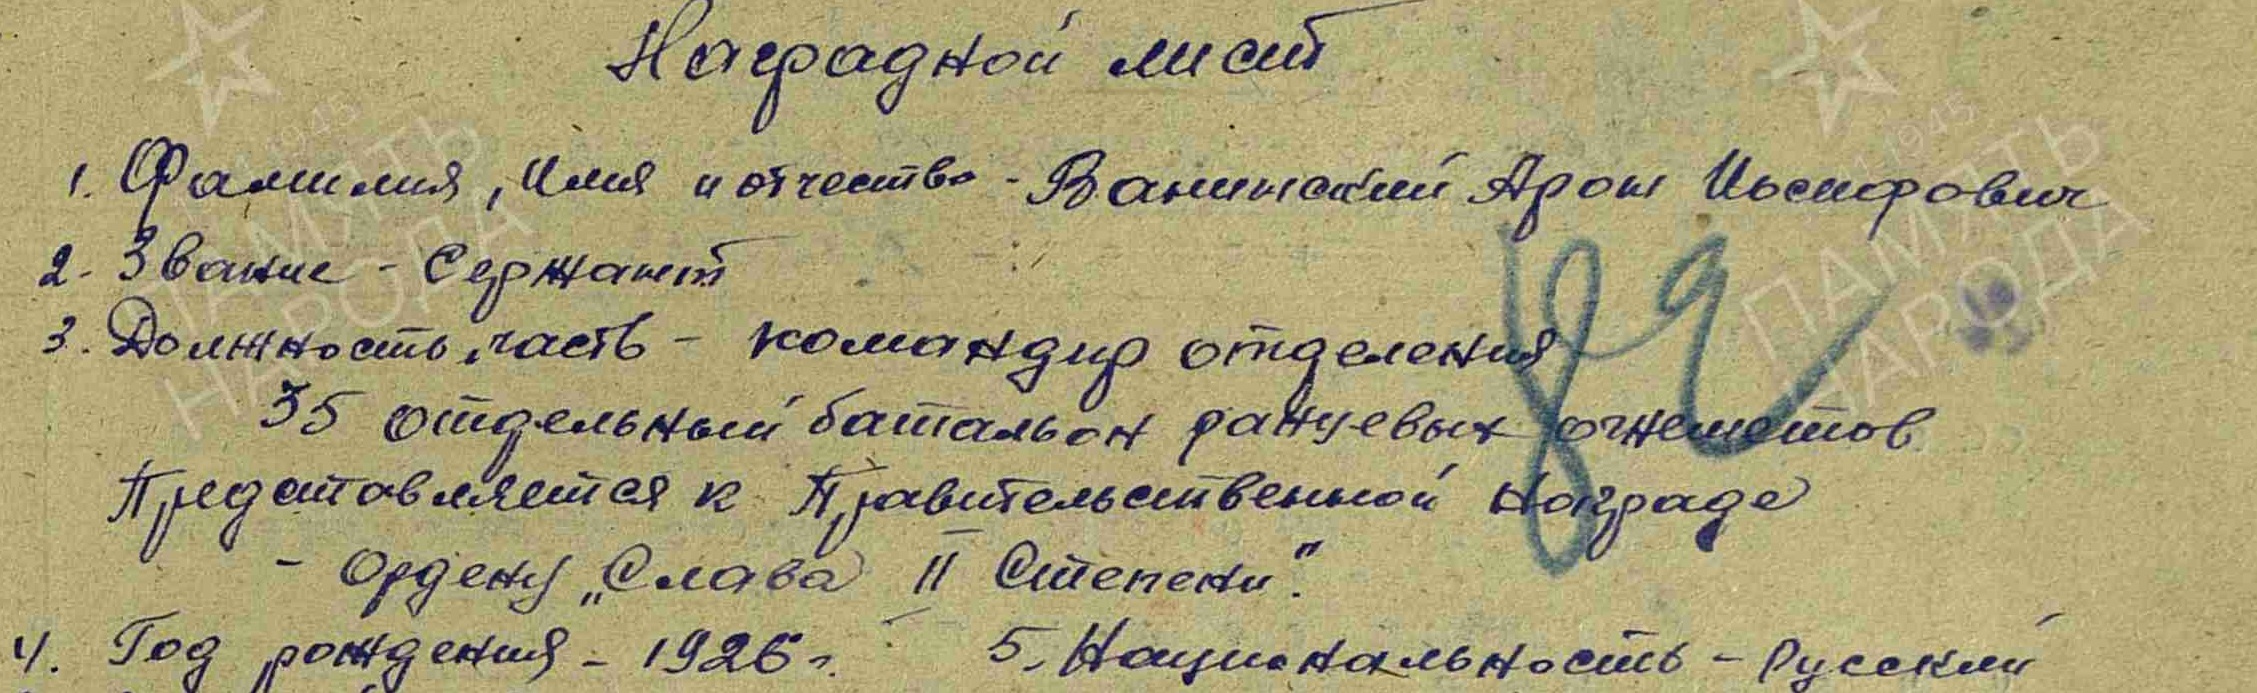 Наградной лист
1. Фамилия, Имя и отчество - Ванинский Арон Иосифович
2. Звание - Сержант
3. Должность, часть - командир отделения
35 отдельный батальон ранцевых огнеметов
Представляется к Правительственной награде
- Ордену „Слава II Степени".
4. Год рождения - 1926 г. 5. Национальность - Русский
ПАМЯТЬ НАРОДА
ПАМЯТЬ НАРОДА